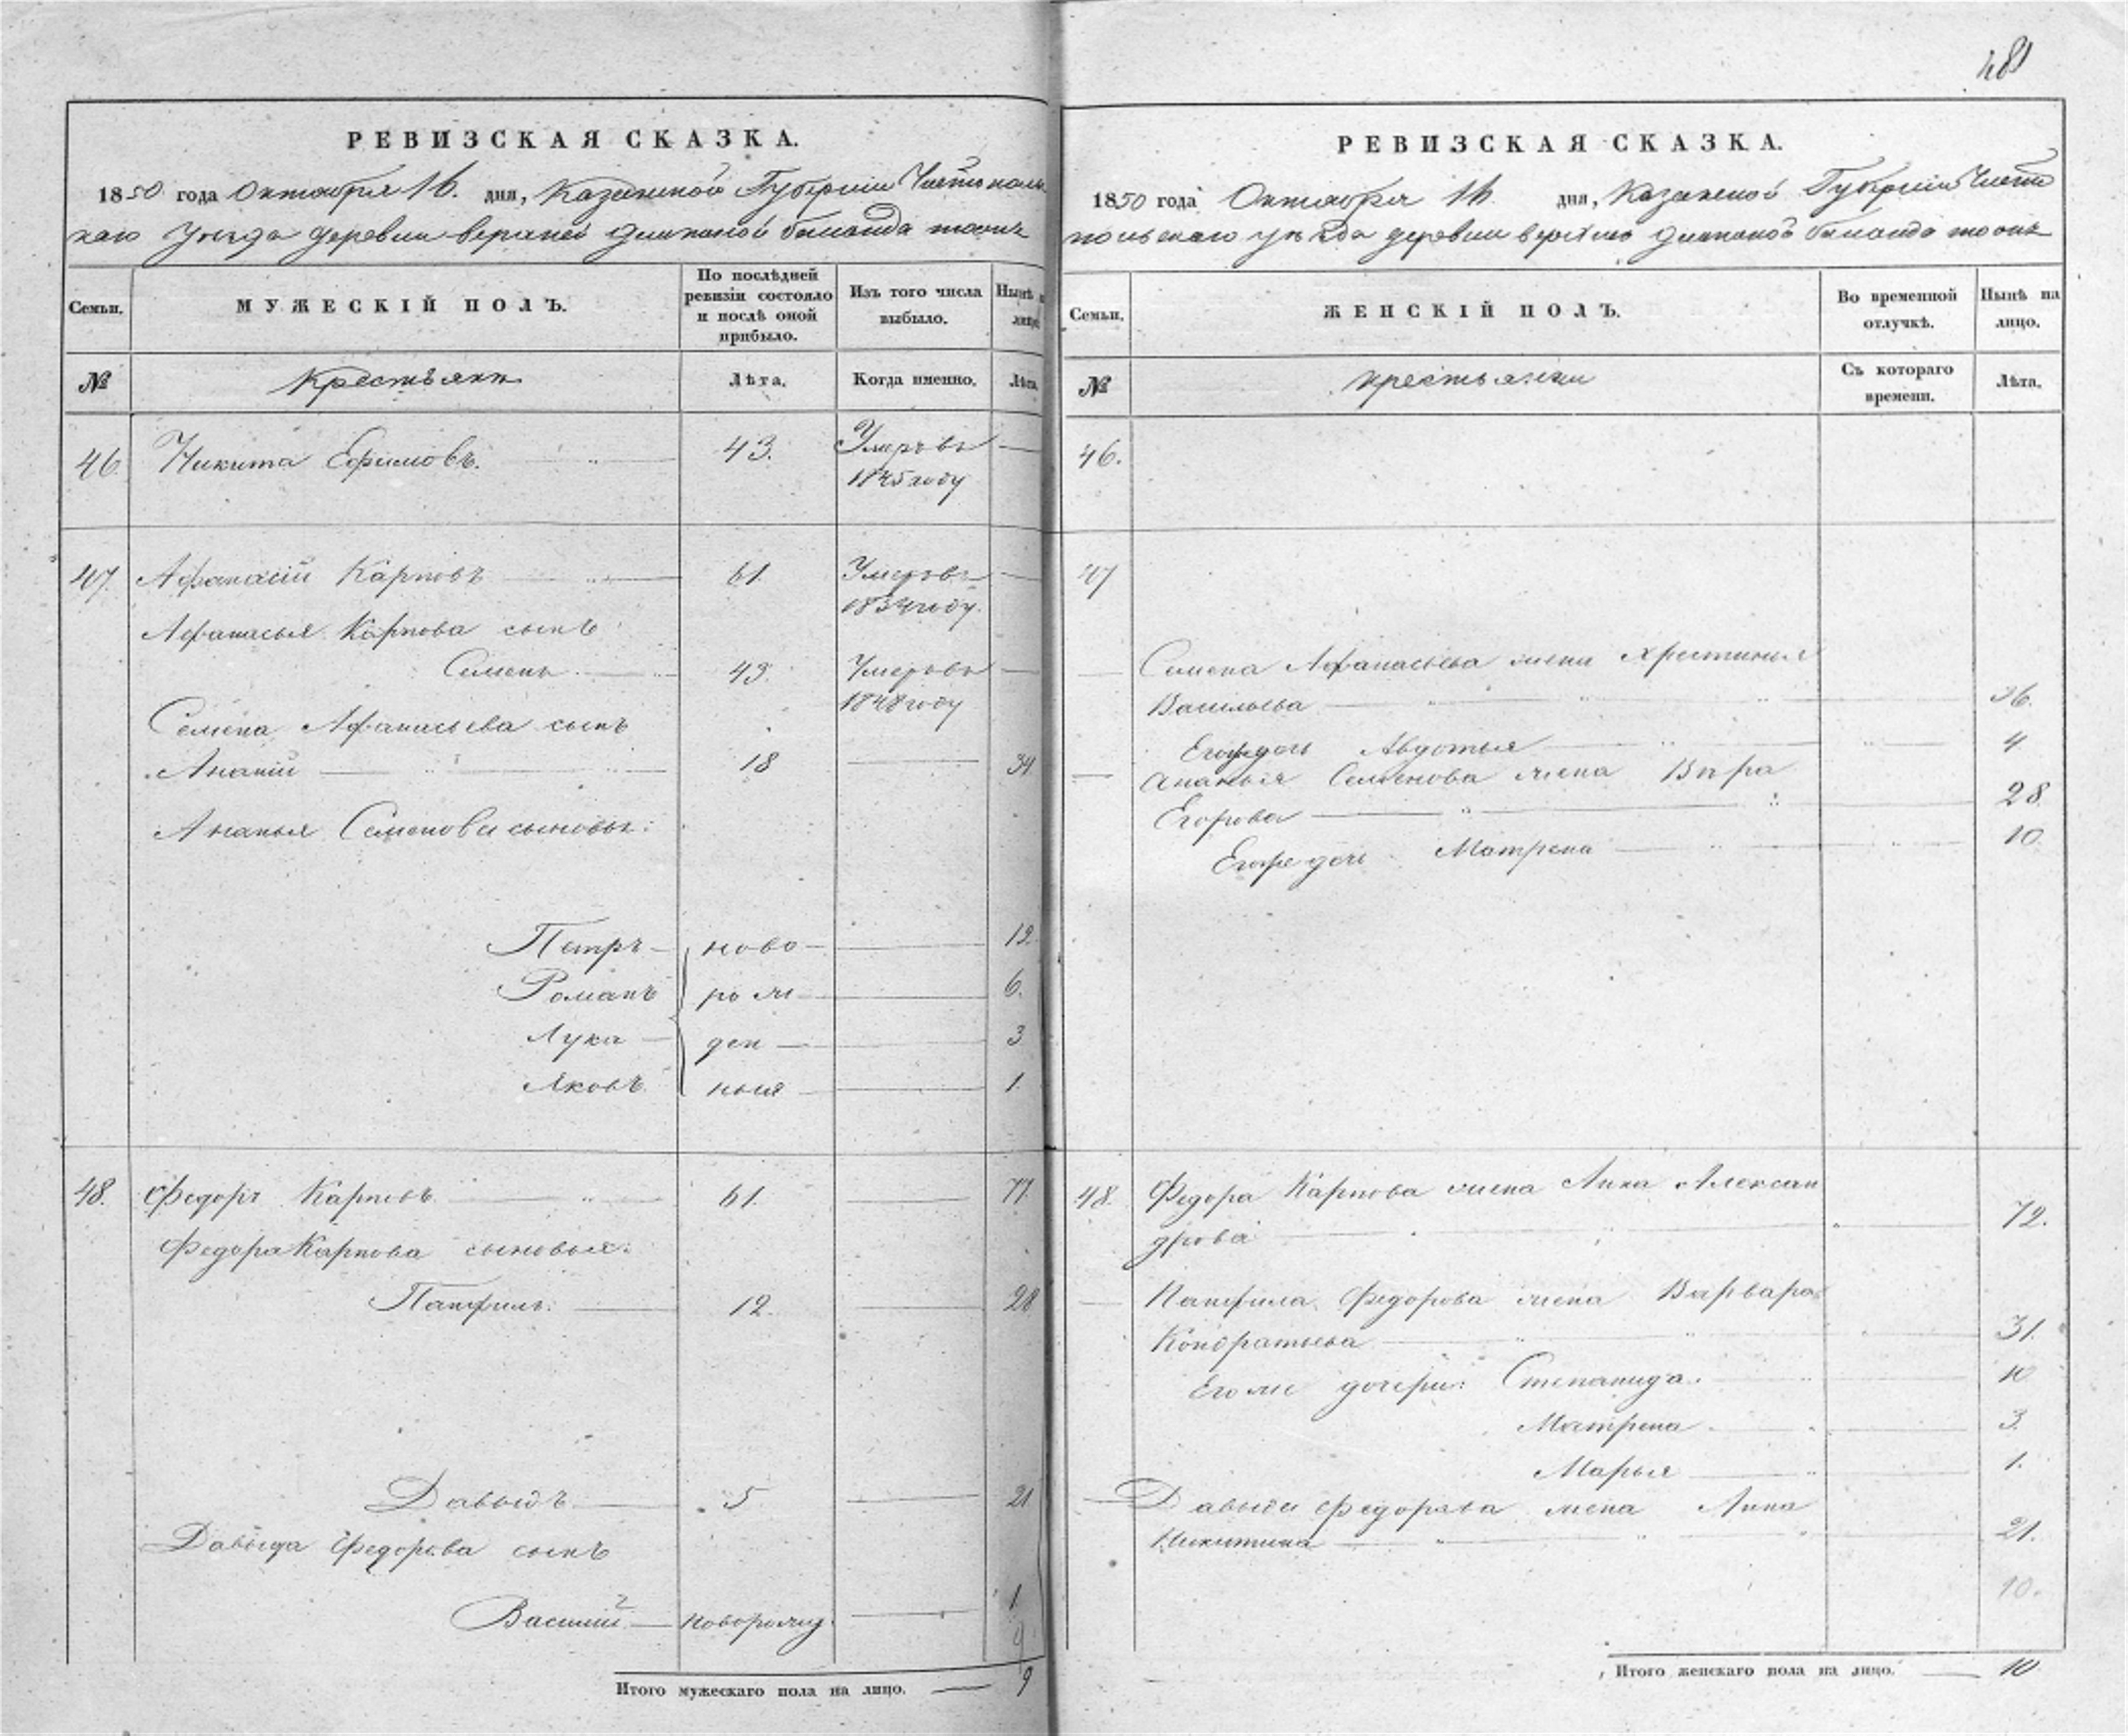 481
РЕВИЗСКАЯ СКАЗКА.
1850 года Октября 16. дня, Казанской Губерніи Чистополь
каго Уѣзда деревни верхней
Семьи.
МУЖЕСКІЙ ПОЛЪ.
По послѣдней ревизіи состояло и послѣ оной прибыло.
Изъ того числа выбыло.
Нынѣ на лицо.
№
Крестьяне
Лѣта.
Когда именно.
Лѣта.
46. Никита Ефимовъ. 43. Умеръ въ —
1845 году
47. Афанасій Карповъ 61. Умеръ въ —
1834 году.
Афанасья Карпова сынъ
Семенъ 43. Умеръ въ —
1848 году
Семена Афанасьева сынъ
Ананій — 18 — 34
Ананья Семенова сыновья:
Петръ — ново — 12.
Романъ рож — 6.
Лука — ден — 3
Яковъ ныя — 1.
48. Федоръ Карповъ 61. — 77.
Федора Карпова сыновья:
Панфилъ. — 12. — 28
Давыдъ — 5 — 21
Давыда Федорова сынъ
Василій — новорожд. — 1
9
Итого мужескаго пола на лицо. — 9
РЕВИЗСКАЯ СКАЗКА.
1850 года Октября 16 дня, Казанской Губерніи Чисто
польскаго уѣзда деревни верхней
Семьи.
ЖЕНСКІЙ ПОЛЪ.
Во временной отлучкѣ.
Нынѣ на лицо.
№
крестьянки
Съ котораго времени.
Лѣта.
46.
47
— Семена Афанасьева жена Хрестинья
Васильева — 36.
Егоже дочь Авдотья — 4
— Ананья Семенова жена Вѣра
Егорова — 28.
Егоже дочь Матрена — 10
48. Федора Карпова жена Анна Алексан
дрова — 72.
— Панфила Федорова жена Варвара
Кондратьева — 31.
Егоже дочери: Степанида. 10
Матрена 3.
Марья — 1.
— Давыда Федорова жена Анна
Никитина — 21.
10.
Итого женскаго пола на лицо. — 10